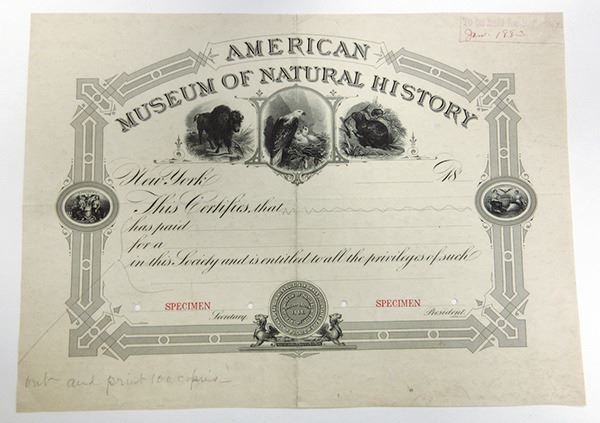 To be
Jan. 1883
AMERICAN
MUSEUM OF NATURAL HISTORY
New York 18
This Certifies, that
has paid
for a
in this Society and is entitled to all the privileges of such
SPECIMEN SPECIMEN
Secretary. President.
and print 100 copies